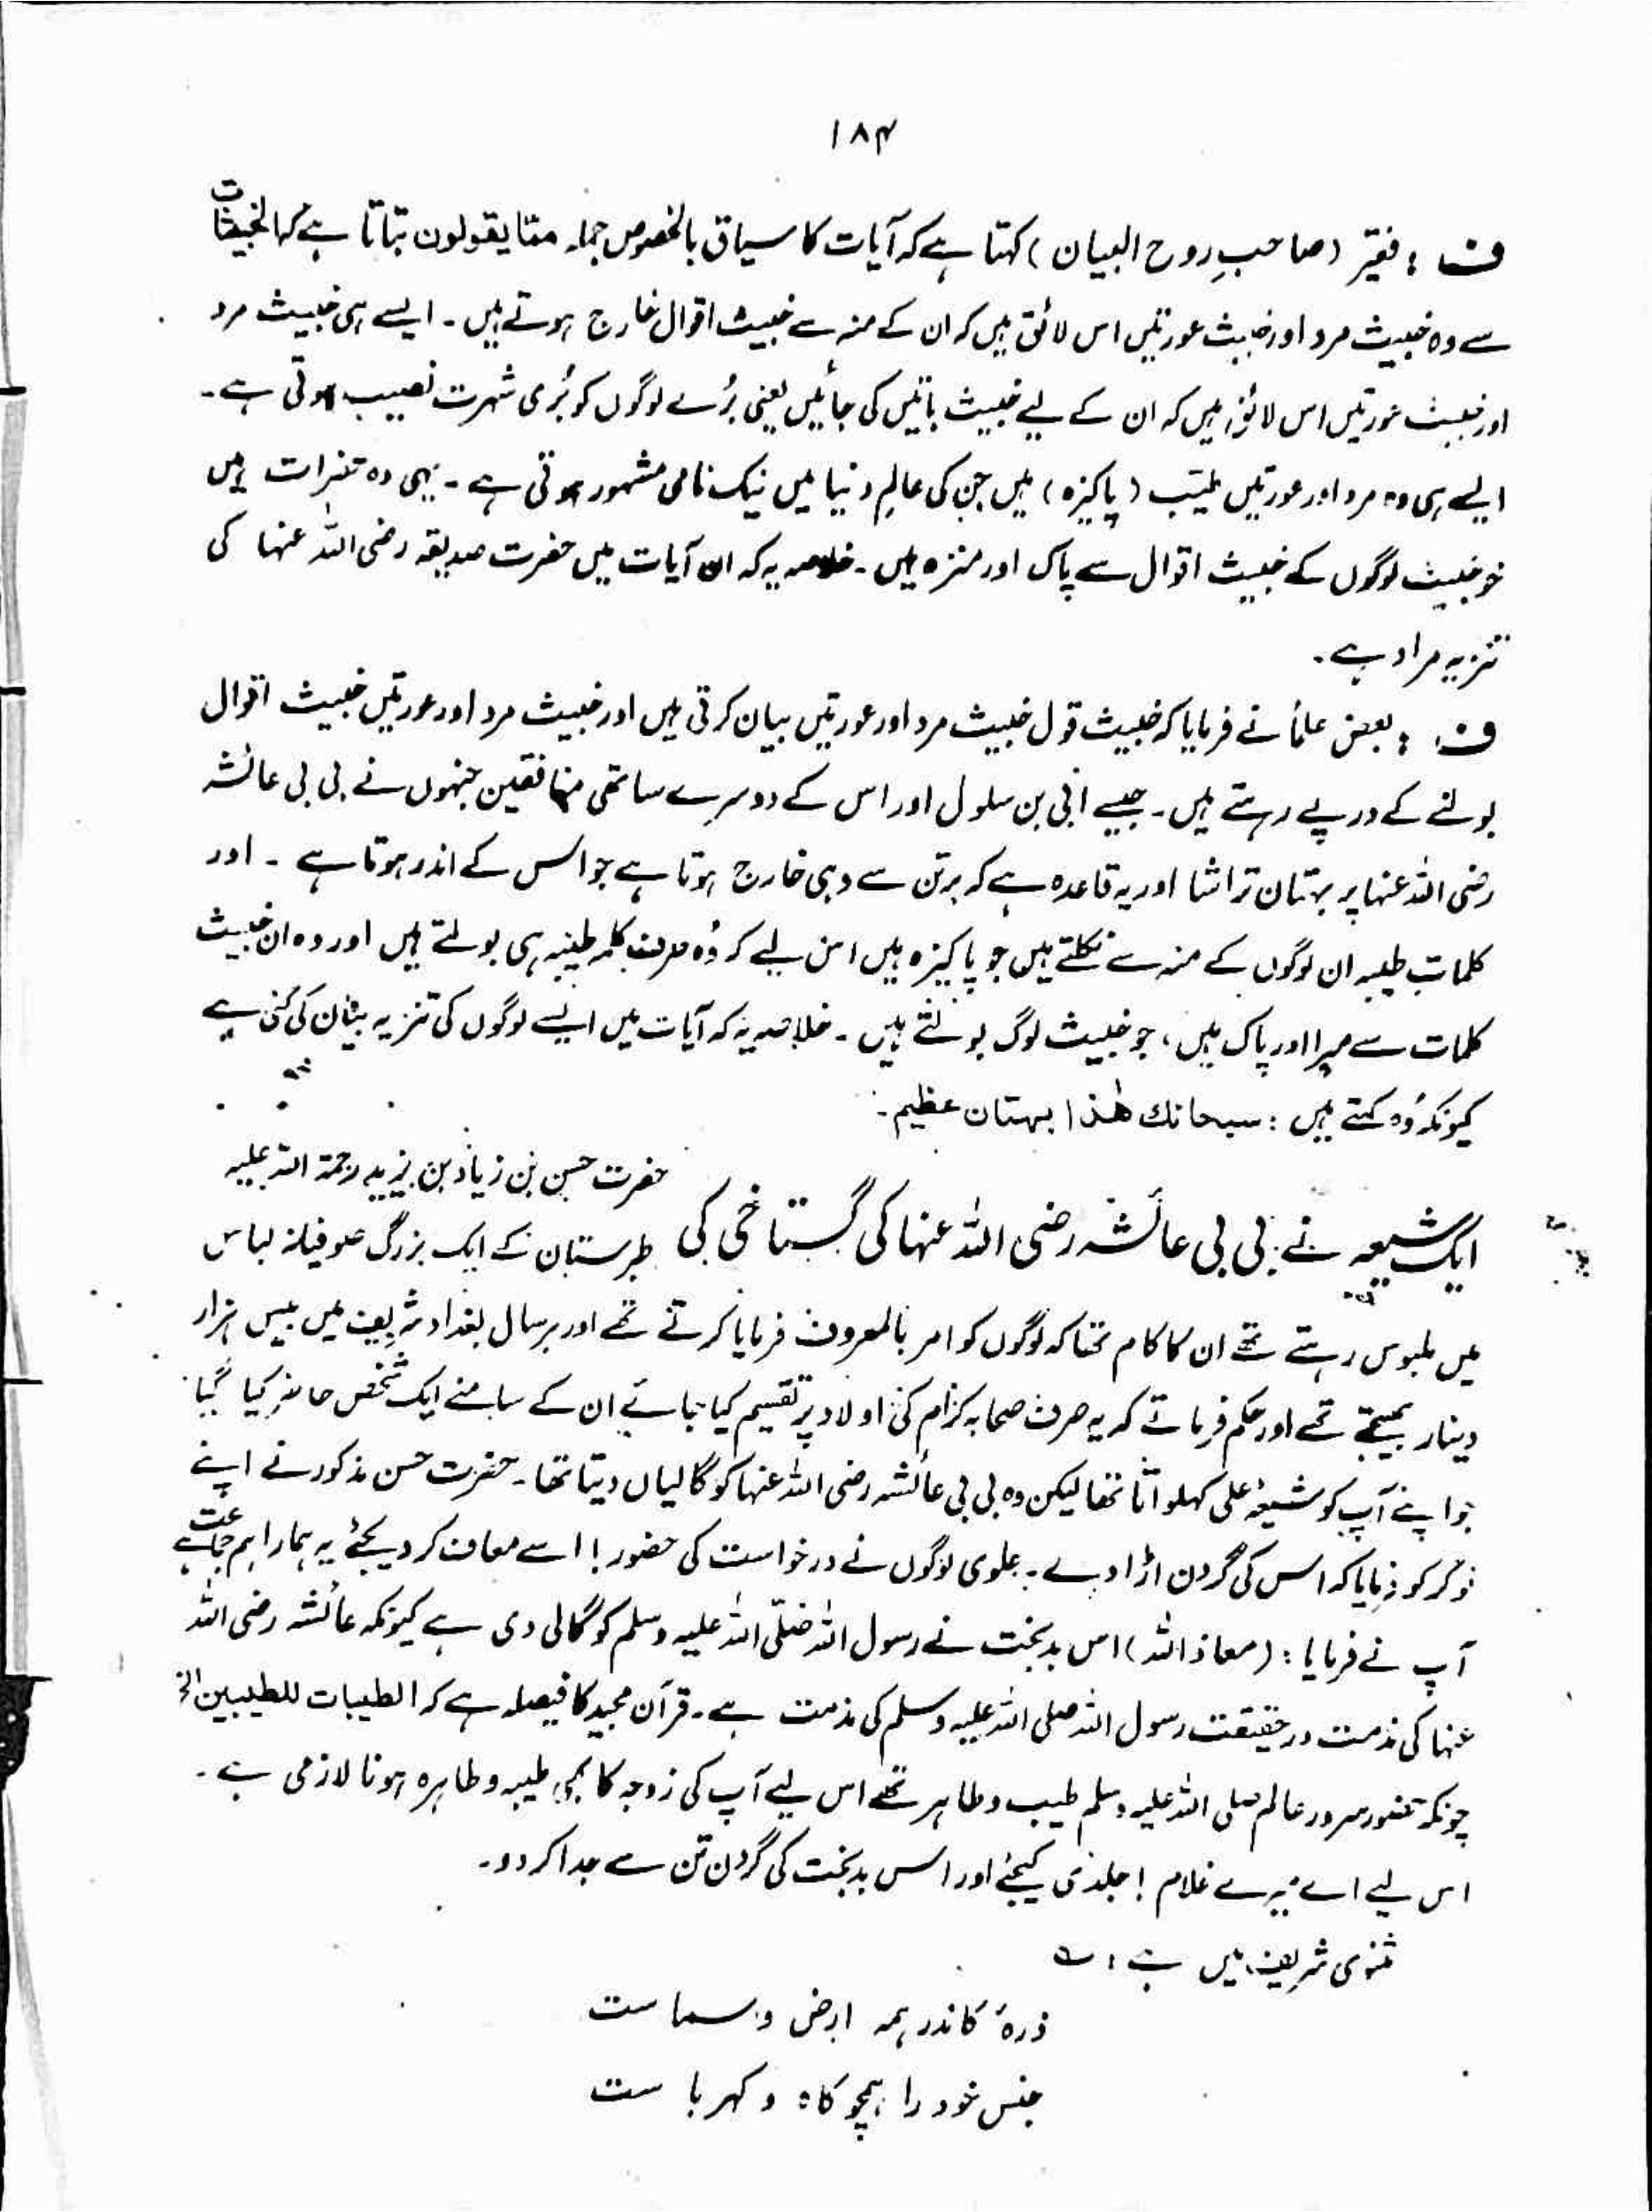 ۱۸۴
ف : فقیر (صاحبِ روح البیان) کہتا ہے کہ آیات کا سیاق بالخصوص جملہ مما یقولون بتاتا ہے کہ الخبیثات
سے وہ خبیث مرد اور خبیث عورتیں اس لائق ہیں کہ ان کے منہ سے خبیث اقوال خارج ہوتے ہیں۔ ایسے ہی خبیث مرد
اور خبیث عورتیں اس لائق ہیں کہ ان کے لیے خبیث باتیں کی جائیں یعنی بُرے لوگوں کو بُری شہرت نصیب ہوتی ہے۔
ایسے ہی وہ مرد اور عورتیں طیّب (پاکیزہ) ہیں جن کی عالمِ دنیا میں نیک نامی مشہور ہوتی ہے۔ یہی وہ حضرات ہیں
جو خبیث لوگوں کے خبیث اقوال سے پاک اور منزہ ہیں۔ خلاصہ یہ کہ ان آیات میں حضرت صدیقہ رضی اللہ عنہا کی
تنزیہ مراد ہے۔
ف : بعض علماء نے فرمایا کہ خبیث قول خبیث مرد اور عورتیں بیان کرتی ہیں اور خبیث مرد اور عورتیں خبیث اقوال
بولنے کے درپے رہتے ہیں۔ جیسے ابی بن سلول اور اس کے دوسرے ساتھی منافقین جنہوں نے بی بی عائشہ
رضی اللہ عنہا پر بہتان تراشا اور یہ قاعدہ ہے کہ برتن سے وہی خارج ہوتا ہے جو اس کے اندر ہوتا ہے۔ اور
کلماتِ طیبہ ان لوگوں کے منہ سے نکلتے ہیں جو پاکیزہ ہیں اس لیے کہ وُہ صرف کلمہ طیبہ ہی بولتے ہیں اور وہ ان خبیث
کلمات سے مبرا اور پاک ہیں، جو خبیث لوگ بولتے ہیں۔ خلاصہ یہ کہ آیات میں ایسے لوگوں کی تنزیہ بیان کی گئی ہے
کیونکہ وُہ کہتے ہیں : سبحانك هٰذا بهتان عظیم۔
حضرت حسن بن زیاد بن یزید رحمۃ اللہ علیہ
ایک شیعہ نے بی بی عائشہ رضی اللہ عنہا کی گستاخی کی طبرستان کے ایک بزرگ صوفیانہ لباس
میں ملبوس رہتے تھے ان کا کام تھا کہ لوگوں کو امر بالمعروف فرمایا کرتے تھے اور ہر سال بغداد شریف میں بیس ہزار
دینار بھیجتے تھے اور حکم فرماتے کہ یہ صرف صحابہ کرام کی اولاد پر تقسیم کیا جائے ان کے سامنے ایک شخص حاضر کیا گیا
جو اپنے آپ کو شیعۂ علی کہلواتا تھا لیکن وہ بی بی عائشہ رضی اللہ عنہا کو گالیاں دیتا تھا۔ حضرت حسن مذکور نے اپنے
نوکر کو فرمایا کہ اس کی گردن اڑا دے۔ علوی لوگوں نے درخواست کی حضور! اسے معاف کر دیجئے یہ ہمارا ہم جماعت ہے
آپ نے فرمایا : (معاذ اللہ) اس بدبخت نے رسول اللہ صلّی اللہ علیہ وسلم کو گالی دی ہے کیونکہ عائشہ رضی اللہ
عنہا کی مذمت درحقیقت رسول اللہ صلی اللہ علیہ وسلم کی مذمت ہے۔ قرآن مجید کا فیصلہ ہے کہ الطیبات للطیبین الخ
چونکہ حضور سرور عالم صلی اللہ علیہ وسلم طیب و طاہر تھے اس لیے آپ کی زوجہ کا بھی طیبہ و طاہرہ ہونا لازمی ہے۔
اس لیے اے میرے غلام! جلدی کیجئے اور اس بدبخت کی گردن تن سے جدا کر دو۔
مثنوی شریف میں ہے : ؎
ذرۂ کاندر ہمہ ارض و سما ست
جنس خود را ہمچو کاہ و کہربا ست